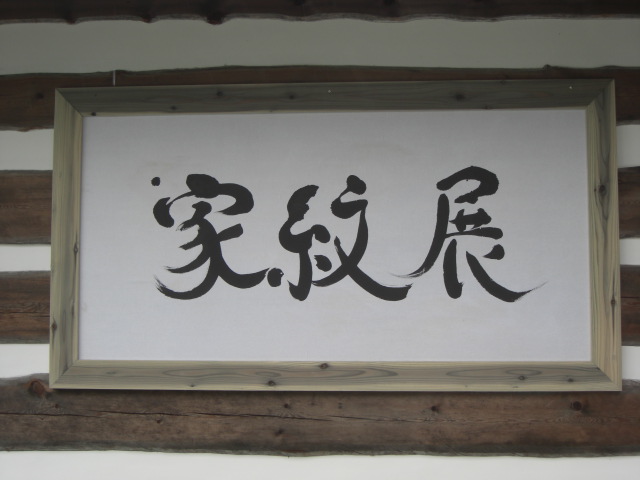 家紋展